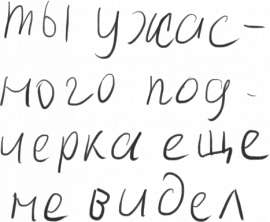 ты ужас-
ного под-
черка еще
не видел